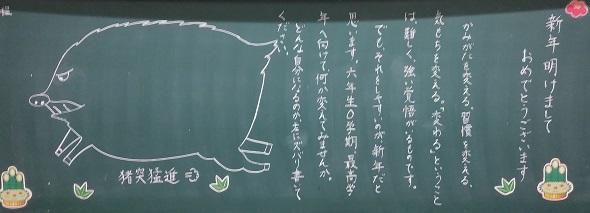 新年明けまして
おめでとうございます
かみがたを変える。習慣を変える。
気もちを変える。"変わる"ということ
は、難しく、強い覚悟がいるものです。
でも、それをしやすいのが新年だと
思います。六年生0学期、最高学
年へ向けて何か変えてみませんか。
どんな自分になるのか左にズバリ書いて
ください。
猪突猛進